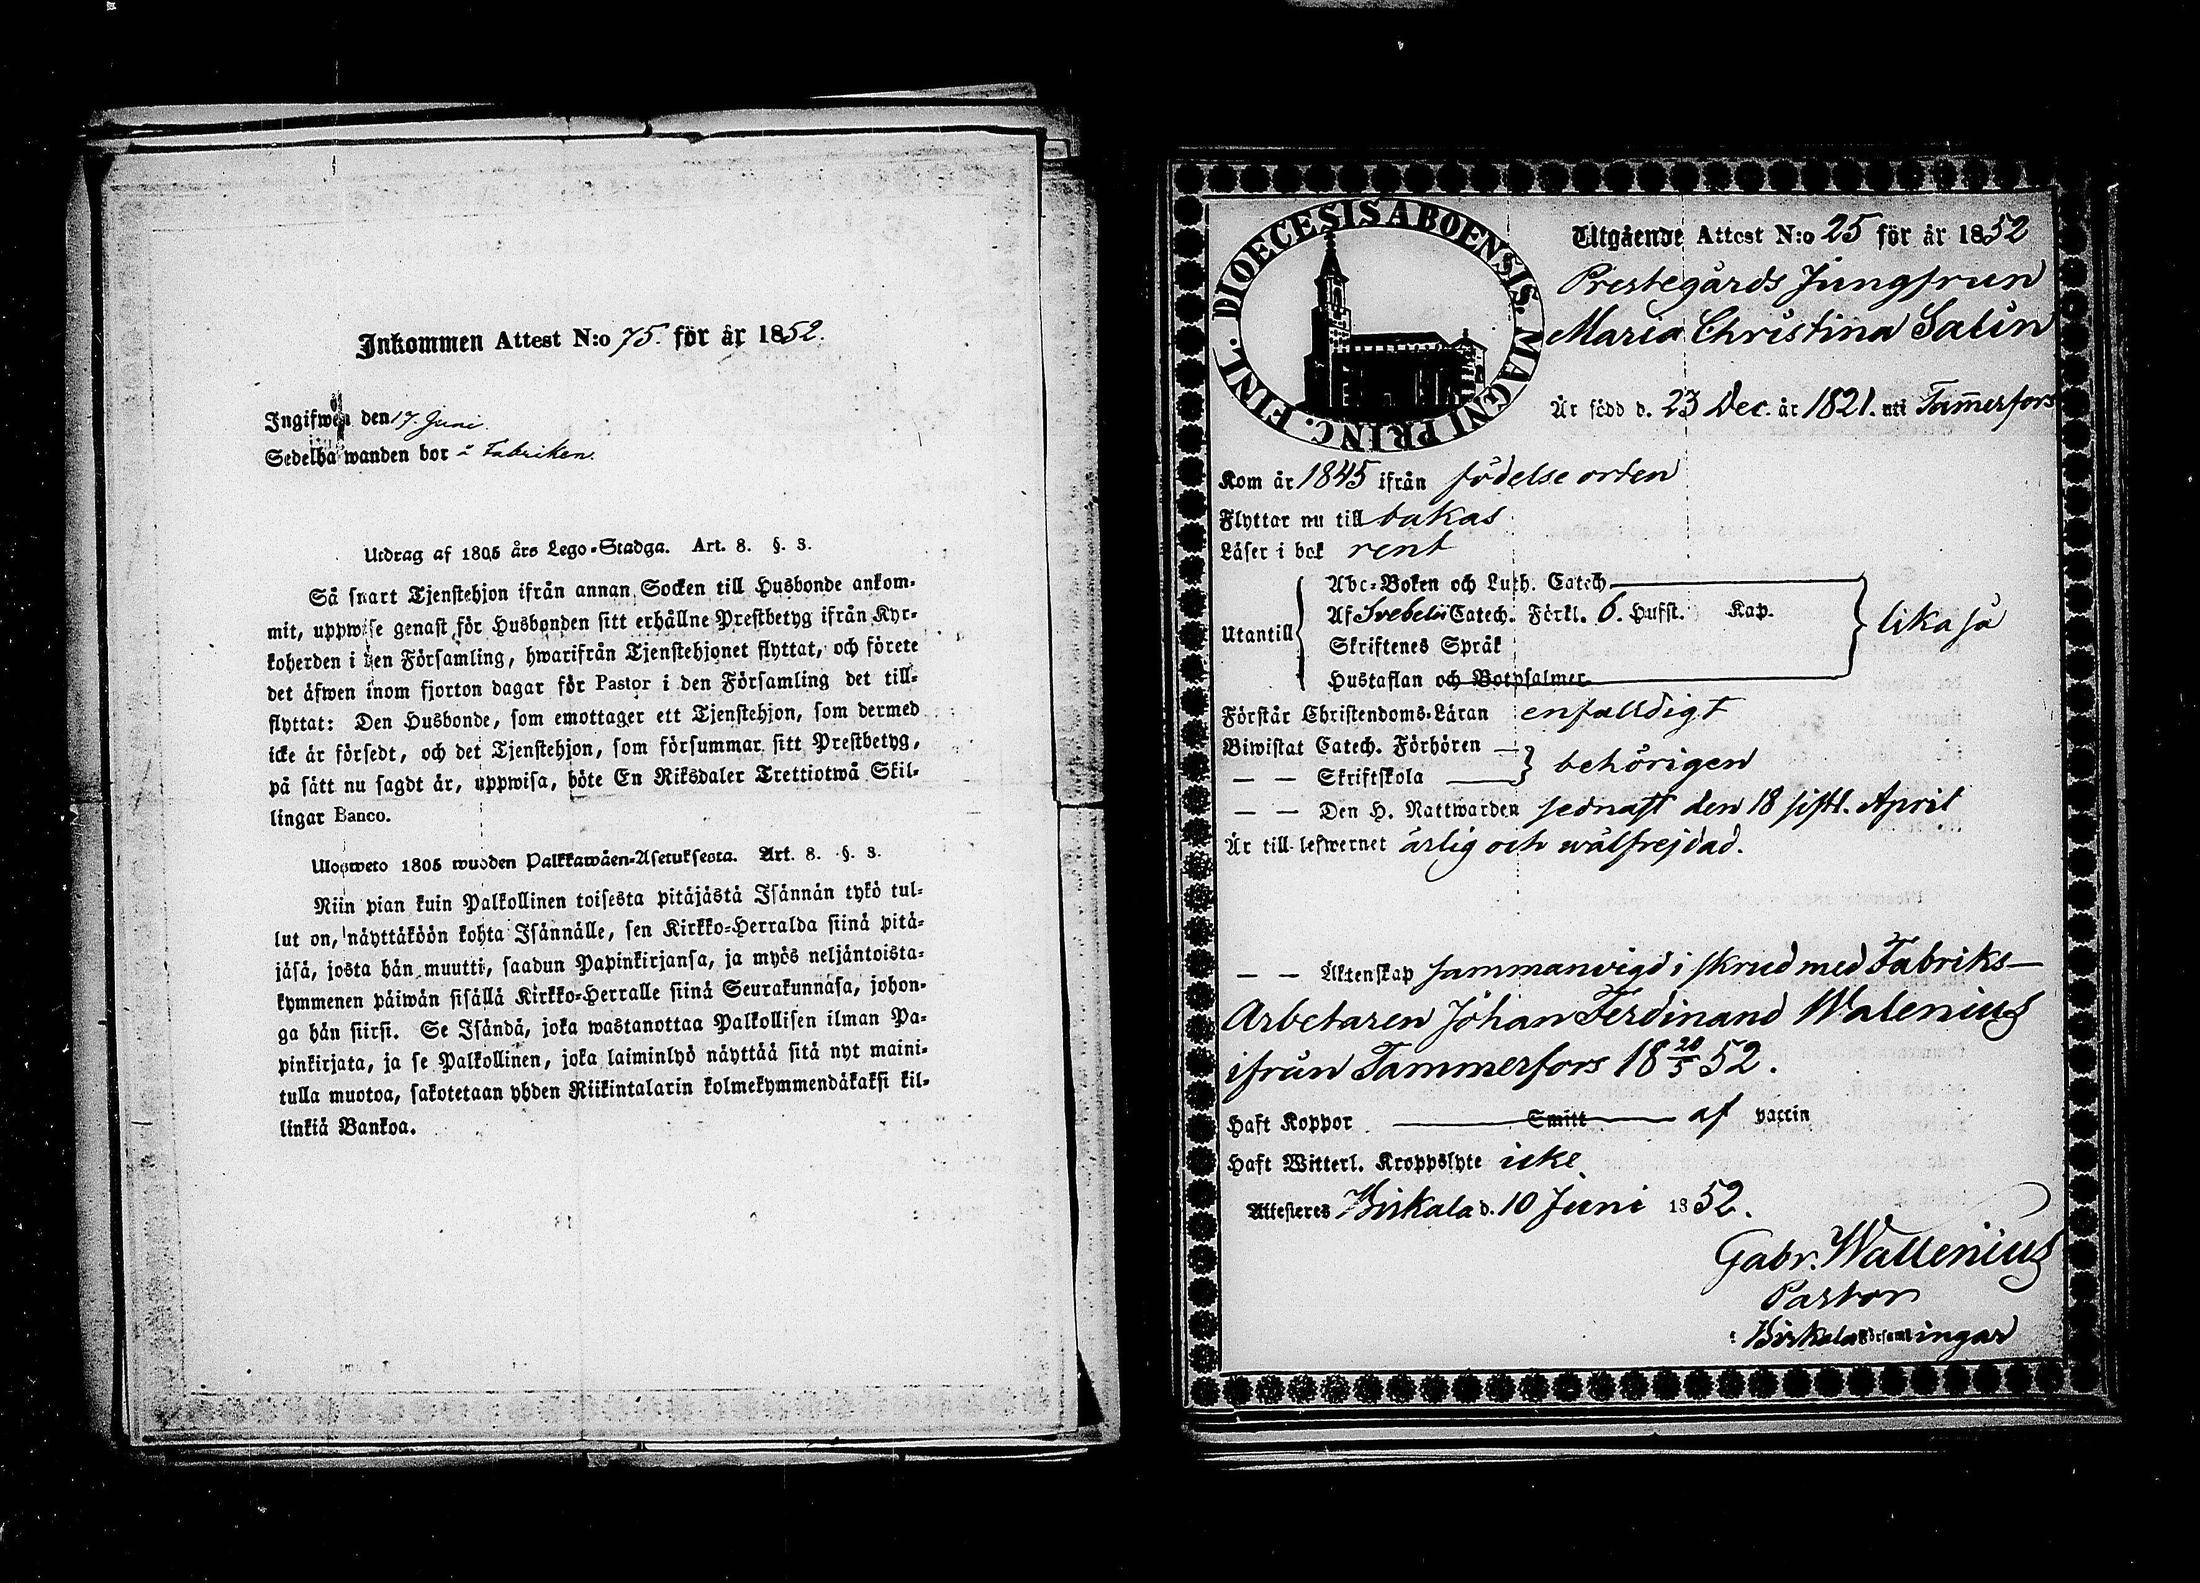 Inkommen Attest N:o 75. för år 1852.
Ingifwen den 17. Juni.
Sedelhafwanden bor å Fabriken.
Utdrag af 1805 års Lego-Stadga. Art. 8. §. 3.
Så snart Tjenstehjon ifrån annan Socken till Husbonde ankom-
mit, uppwise genast för Husbonden sitt erhållne Prestbetyg ifrån Kyr-
koherden i den Församling, hwarifrån Tjenstehjonet flyttat, och förete
det äfwen inom fjorton dagar för Pastor i den Församling det till-
flyttat: Den Husbonde, som emottager ett Tjenstehjon, som dermed
icke är försedt, och det Tjenstehjon, som försummar sitt Prestbetyg,
på sätt nu sagdt är, uppwisa, böte En Riksdaler Trettiotwå Skil-
lingar Banco.
Ulosweto 1805 wuoden Palkkawäen-Asetuksesta. Art. 8. §. 3.
Niin pian kuin Palkollinen toisesta pitäjästä Isännän tykö tul-
lut on, näyttäköön kohta Isännälle, sen Kirkko-Herralda siinä pitä-
jäsä, josta hän muutti, saadun Papinkirjansa, ja myös neljäntoista-
kymmenen päiwän sisällä Kirkko-Herralle siinä Seurakunnasa, johon-
ga hän siirsi. Se Isändä, joka wastanottaa Palkollisen ilman Pa-
pinkirjata, ja se Palkollinen, joka laiminlyö näyttää sitä nyt maini-
tulla muotoa, sakotetaan yhden Riikintalarin kolmekymmendäkaksi kil-
linkiä Bankoa.
DIOECESIS ABOENSIS. MAGNI PRINC. FINL.
Utgående Attest N:o 25 för år 1852
Prestegårds Jungfrun
Maria Christina Salin
Är född d. 23 Dec. år 1821. uti Tam̅erfors
Kom år 1845 ifrån födelse orten
Flyttar nu till bakas
Läser i bok rent
Utantill
Abc-Boken och Luth. Catech.
Af Svebelii Catech. Förkl. 6. Hufst. Kap.
Skriftenes Språk
Hustaflan och Botpsalmer.
lika så
Förstår Christendoms-Läran enfalldigt
Biwistat Catech. Förhören
— — Skriftskola
behörigen
— — Den H. Nattwarden sednast den 18 sistl. April
Är till lefwernet ärlig och wälfrejdad.
— — Äktenskap sammanvigd i skrud med Fabriks-
Arbetaren Johan Ferdinand Walenius
ifrån Tammerfors 18 20/5 52.
Haft Koppor Smitt af vaccin
Haft Witterl. Kroppslyte icke
Attesteres Birkala d. 10 Juni 1852.
Gabr. Wallenius
Pastor
i Birkala Församlingar